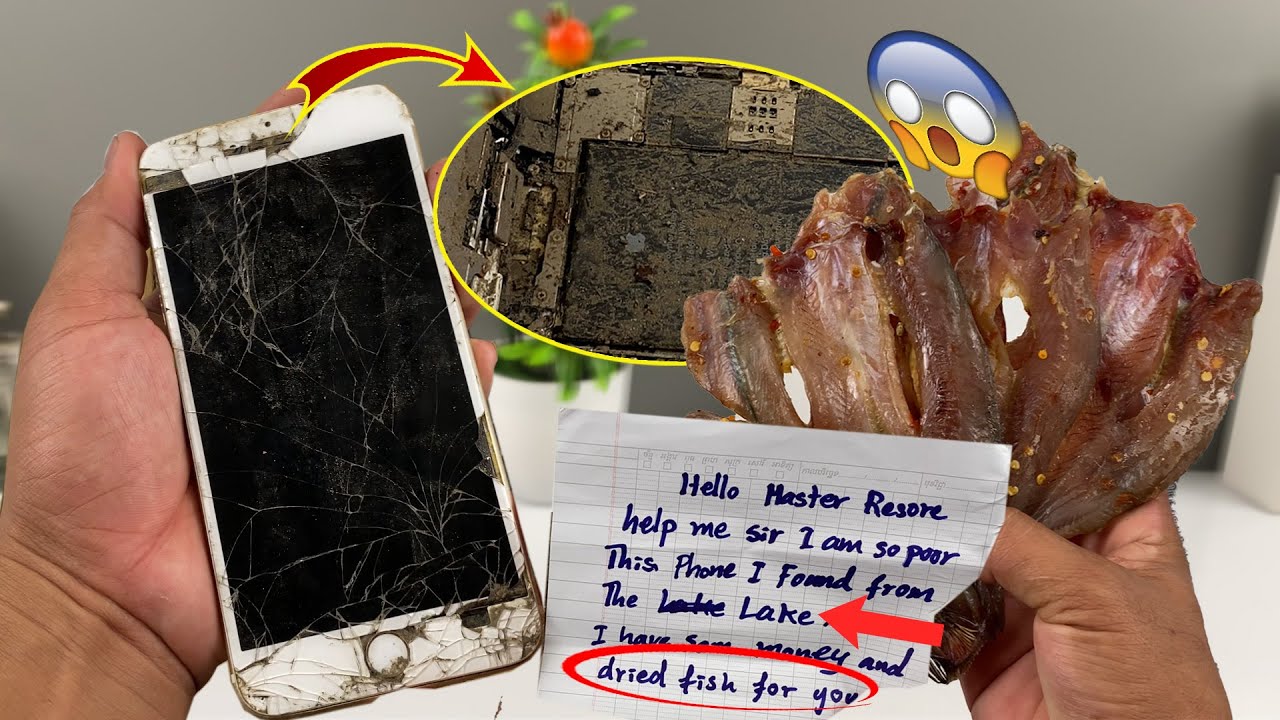 Hello Master Resore
help me sir I am so poor
This Phone I Found from
The Lake.
I have som money and
dried fish for you